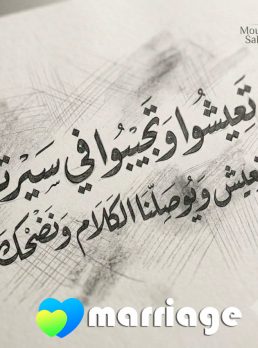 Mou
Sal
تَعِيشُوا وَتجِيبُوا في سَيرت
نعِيش وَيُوصَلّنا الكَلام وَنَضْحَك
marriage